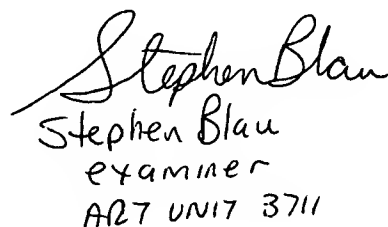 Stephen Blau
Stephen Blau
examiner
ART UNIT 3711